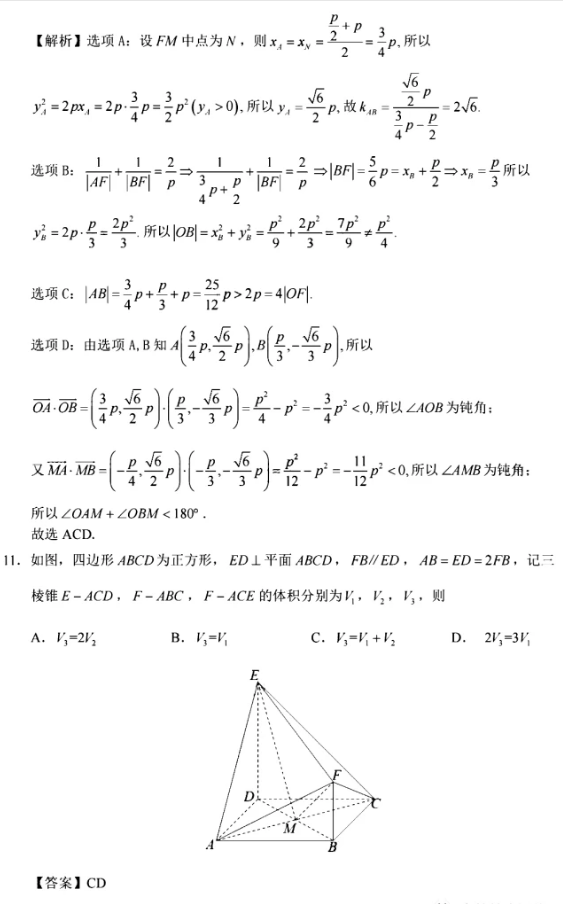 【解析】选项 A：设 FM 中点为 N，则 $x_A = x_N = \frac{\frac{p}{2}+p}{2} = \frac{3}{4}p$, 所以
$y_A^2 = 2px_A = 2p \cdot \frac{3}{4}p = \frac{3}{2}p^2 (y_A > 0)$, 所以 $y_A = \frac{\sqrt{6}}{2}p$, 故 $k_{AB} = \frac{\frac{\sqrt{6}}{2}p}{\frac{3}{4}p - \frac{p}{2}} = 2\sqrt{6}$.
选项 B：$\frac{1}{|AF|} + \frac{1}{|BF|} = \frac{2}{p} \Rightarrow \frac{1}{\frac{3}{4}p + \frac{p}{2}} + \frac{1}{|BF|} = \frac{2}{p} \Rightarrow |BF| = \frac{5}{6}p = x_B + \frac{p}{2} \Rightarrow x_B = \frac{p}{3}$ 所以
$y_B^2 = 2p \cdot \frac{p}{3} = \frac{2p^2}{3}$. 所以 $|OB| = x_B^2 + y_B^2 = \frac{p^2}{9} + \frac{2p^2}{3} = \frac{7p^2}{9} \neq \frac{p^2}{4}$.
选项 C：$|AB| = \frac{3}{4}p + \frac{p}{3} + p = \frac{25}{12}p > 2p = 4|OF|$.
选项 D：由选项 A, B 知 $A\left(\frac{3}{4}p, \frac{\sqrt{6}}{2}p\right), B\left(\frac{p}{3}, -\frac{\sqrt{6}}{3}p\right)$, 所以
$\overrightarrow{OA} \cdot \overrightarrow{OB} = \left(\frac{3}{4}p, \frac{\sqrt{6}}{2}p\right) \cdot \left(\frac{p}{3}, -\frac{\sqrt{6}}{3}p\right) = \frac{p^2}{4} - p^2 = -\frac{3}{4}p^2 < 0$, 所以 ∠AOB 为钝角；
又 $\overrightarrow{MA} \cdot \overrightarrow{MB} = \left(-\frac{p}{4}, \frac{\sqrt{6}}{2}p\right) \cdot \left(-\frac{p}{3}, -\frac{\sqrt{6}}{3}p\right) = \frac{p^2}{12} - p^2 = -\frac{11}{12}p^2 < 0$, 所以 ∠AMB 为钝角；
所以 ∠OAM + ∠OBM < 180°．
故选 ACD.
11．如图，四边形 ABCD 为正方形，ED ⊥ 平面 ABCD，FB // ED，AB = ED = 2FB，记三
棱锥 E − ACD，F − ABC，F − ACE 的体积分别为 $V_1$，$V_2$，$V_3$，则
A．$V_3 = 2V_2$ B．$V_3 = V_1$ C．$V_3 = V_1 + V_2$ D．$2V_3 = 3V_1$
E
F
D
C
M
A
B
【答案】CD